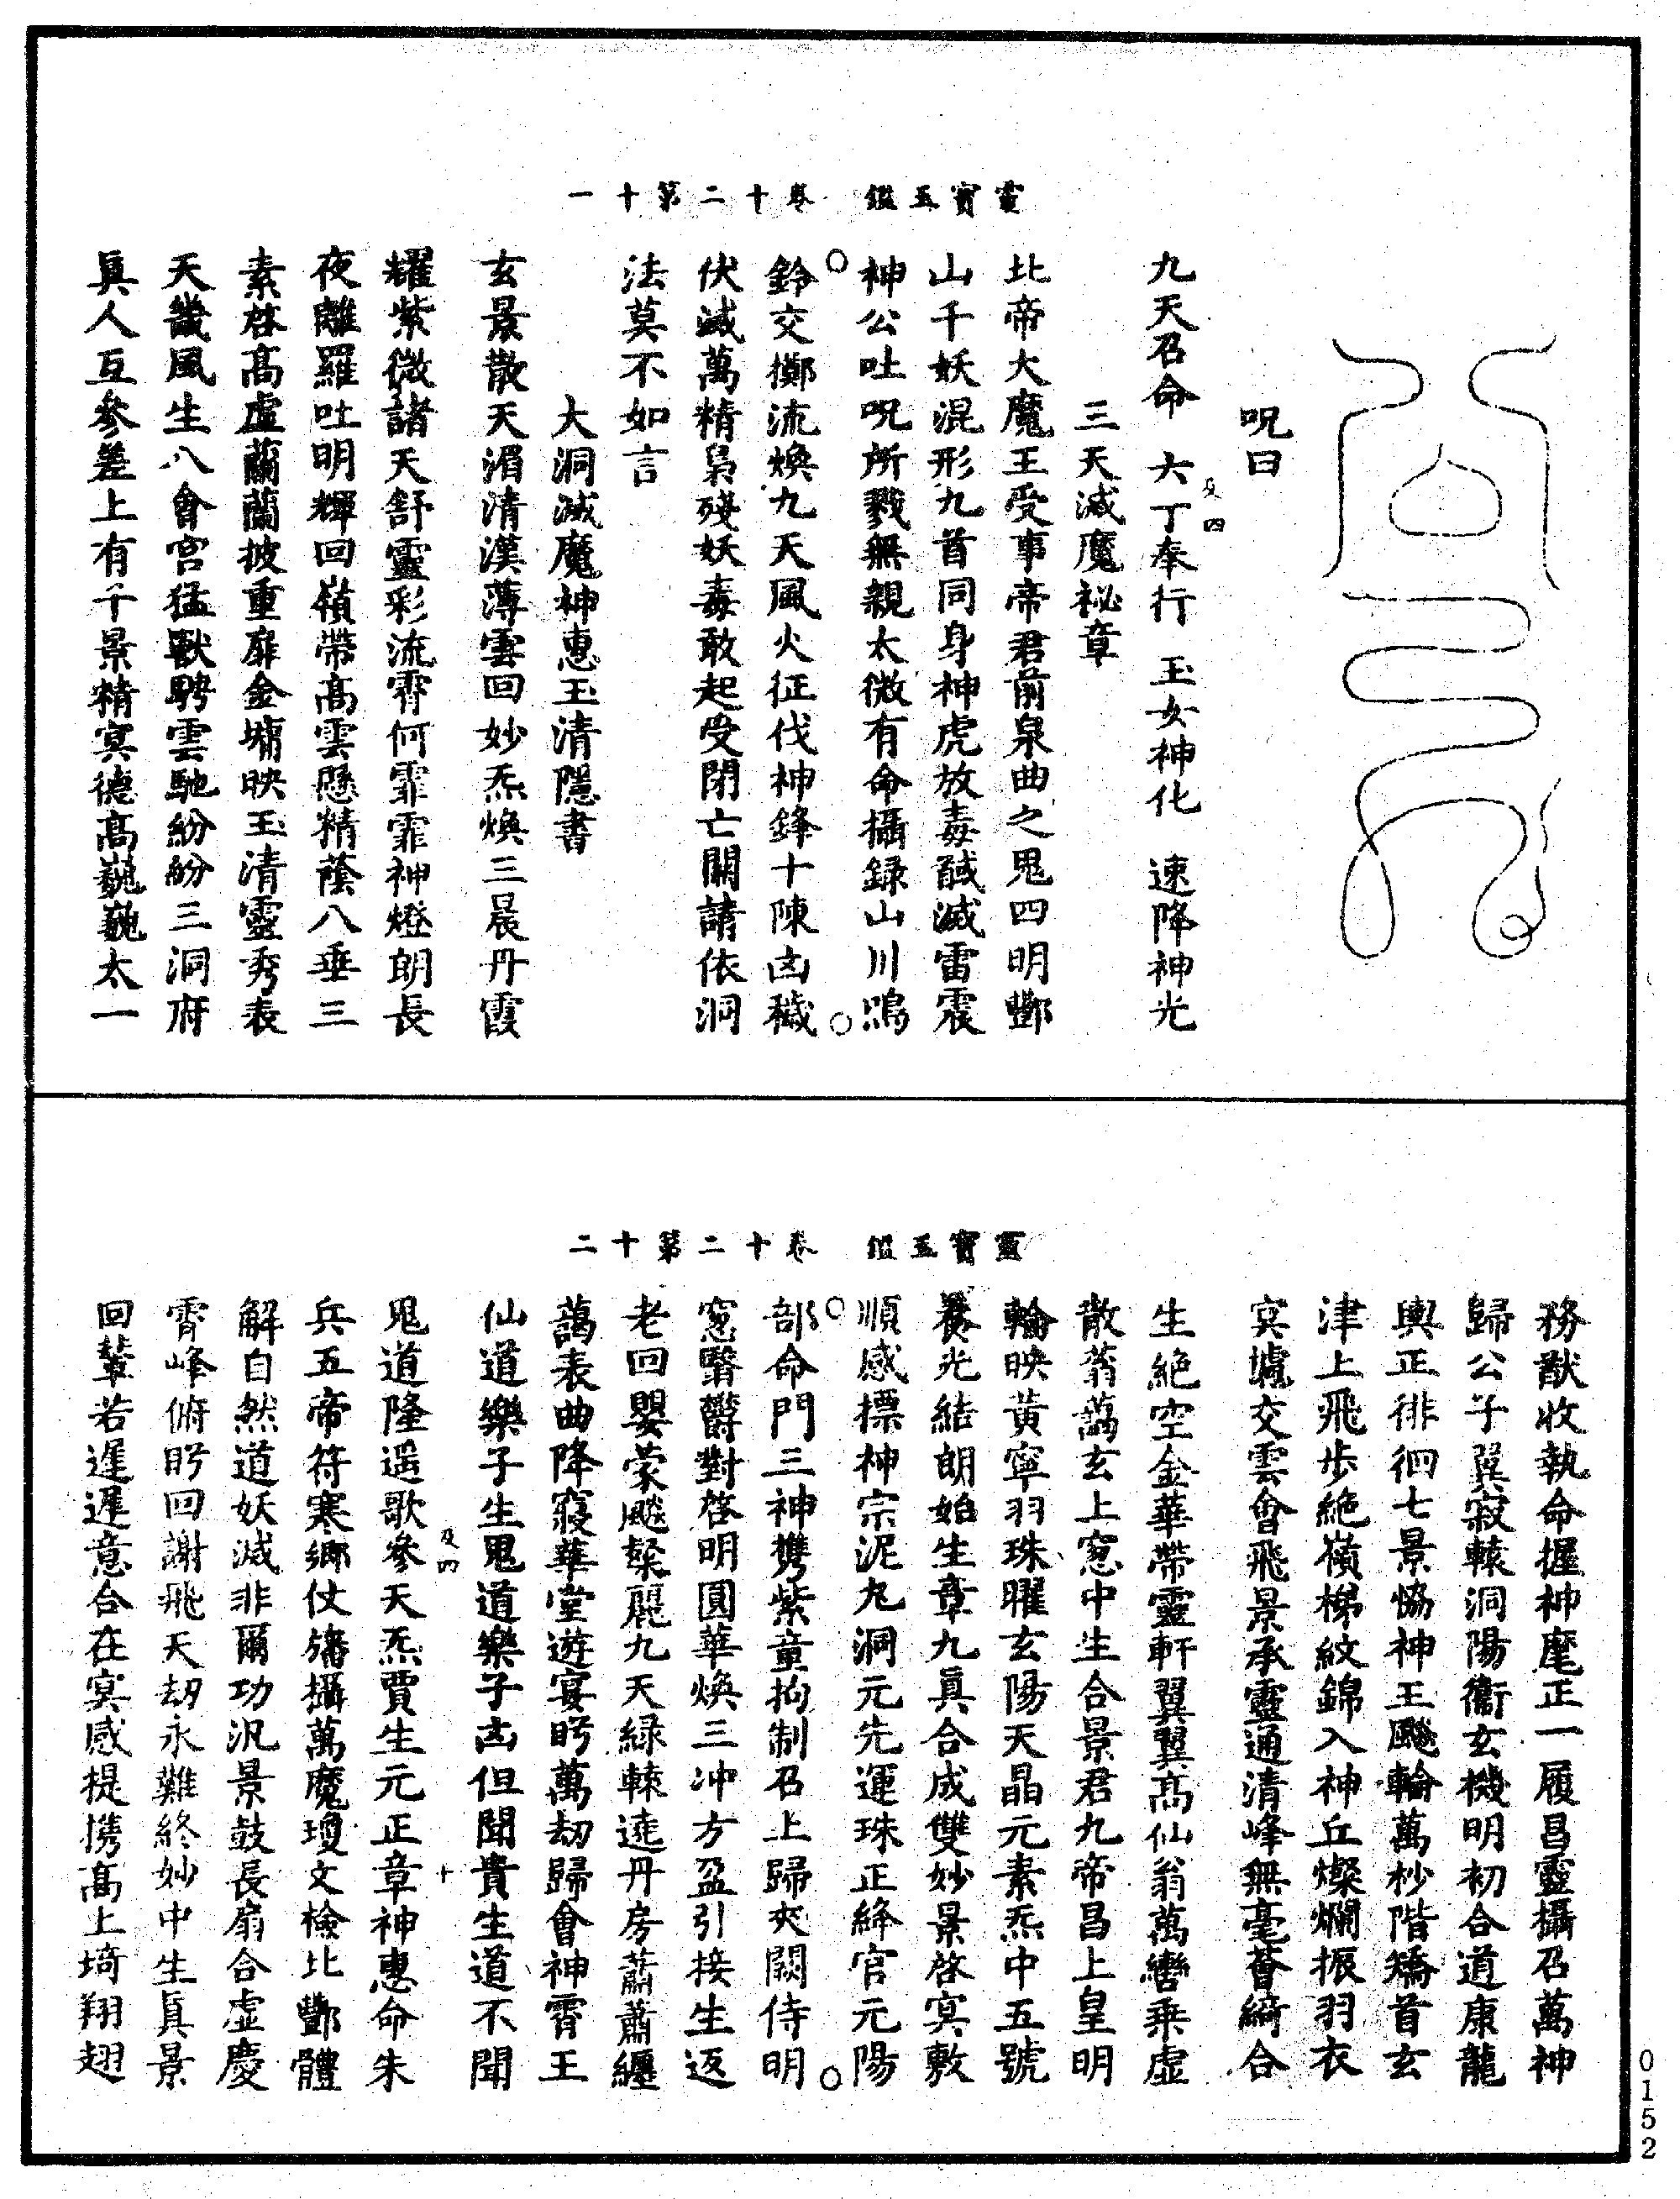 靈寶玉鑑　卷十二第十一
呪曰
九天召命　六丁奉行　玉女神化　速降神光
及四
三天滅魔祕章
北帝大魔王受事帝君前泉曲之鬼四明酆
山千妖混形九首同身神虎放毒馘滅雷震
神公吐呪所戮無親太微有命攝録山川鳴
鈴交擲流煥九天風火征伐神鋒十陳凶穢
伏滅萬精梟殘妖毒敢起受閉亡關請依洞
法莫不如言
大洞滅魔神惠玉清隱書
玄景散天湄清漢薄雲回妙炁煥三晨丹霞
耀紫微諸天舒靈彩流霄何霏霏神燈朗長
夜離羅吐明輝回嶺帶高雲懸精蔭八垂三
素啓高虛蘭蘭披重扉金墉映玉清靈秀表
天畿風生八會宮猛獸騁雲馳紛紛三洞府
眞人互參差上有千景精冥德高巍巍太一
靈寶玉鑑　卷十二第十二
務猷收執命握神麾正一履昌靈攝召萬神
歸公子翼寂轅洞陽衞玄機明初合道康龍
輿正徘徊七景恊神王飈輪萬杪階矯首玄
津上飛步絶嶺梯紋錦入神丘燦爛振羽衣
冥墟交雲會飛景承靈通清峰無毫薈綺合
生絶空金華帶靈軒翼翼高仙翁萬轡乘虛
散蓊藹玄上窓中生合景君九帝昌上皇明
輪映黃寧羽珠曜玄陽天晶元素炁中五號
養光結朗始生章九眞合成雙妙景啓冥敷
順感摽神宗泥丸洞元先運珠正絳官元陽
部命門三神携紫童拘制召上歸夾闕侍明
窓翳欝對啓明圓華煥三冲方盈引接生返
老回嬰蒙飈粲麗九天緑輳逵丹房蕭蕭纒
藹表曲降寢華堂遊宴盻萬劫歸會神霄王
仙道樂子生鬼道樂子凶但聞貴生道不聞
及四　十
鬼道隆遥歌參天炁賈生元正章神惠命朱
兵五帝符寒鄉仗旛攝萬魔瓊文檢北酆體
解自然道妖滅非爾功汎景鼓長扇合虛慶
霄峰俯盻回謝飛天劫永難終妙中生眞景
回輦若遲遲意合在冥感提携高上埼翔翅
0152